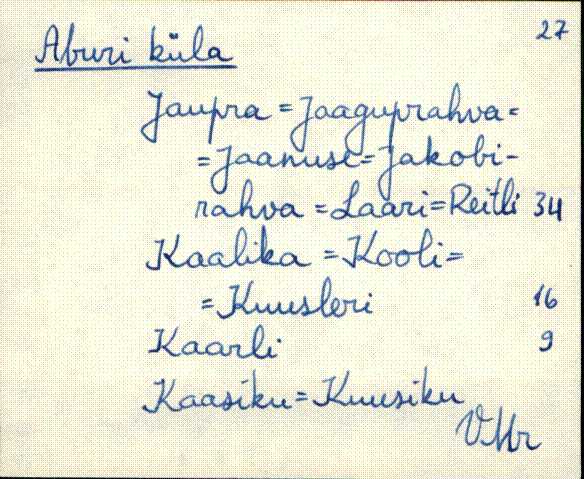 27
Aburi küla
Jaupra = Jaaguprahva =
= Jaanuse = Jakobi-
rahva = Laari = Reitli 34
Kaalika = Kooli =
= Kuusleri 16
Kaarli 9
Kaasiku = Kuusiku